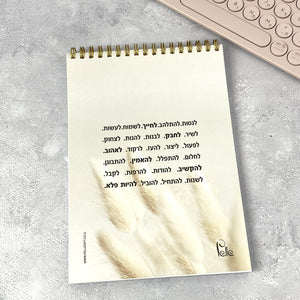 לנסות.להתלהב.לחייך.לשמוח.לעשות.
לשיר. לחבק. לבנות. להנות. לצחוק.
לפעול. ליצור. להעז. לרקוד. לאהוב.
לחלום. להתפלל. להאמין. להתבונן.
להקשיב. להודות. להרפות. לקבל.
לשנות. להתחיל. להוביל. להיות פלא.
Pele